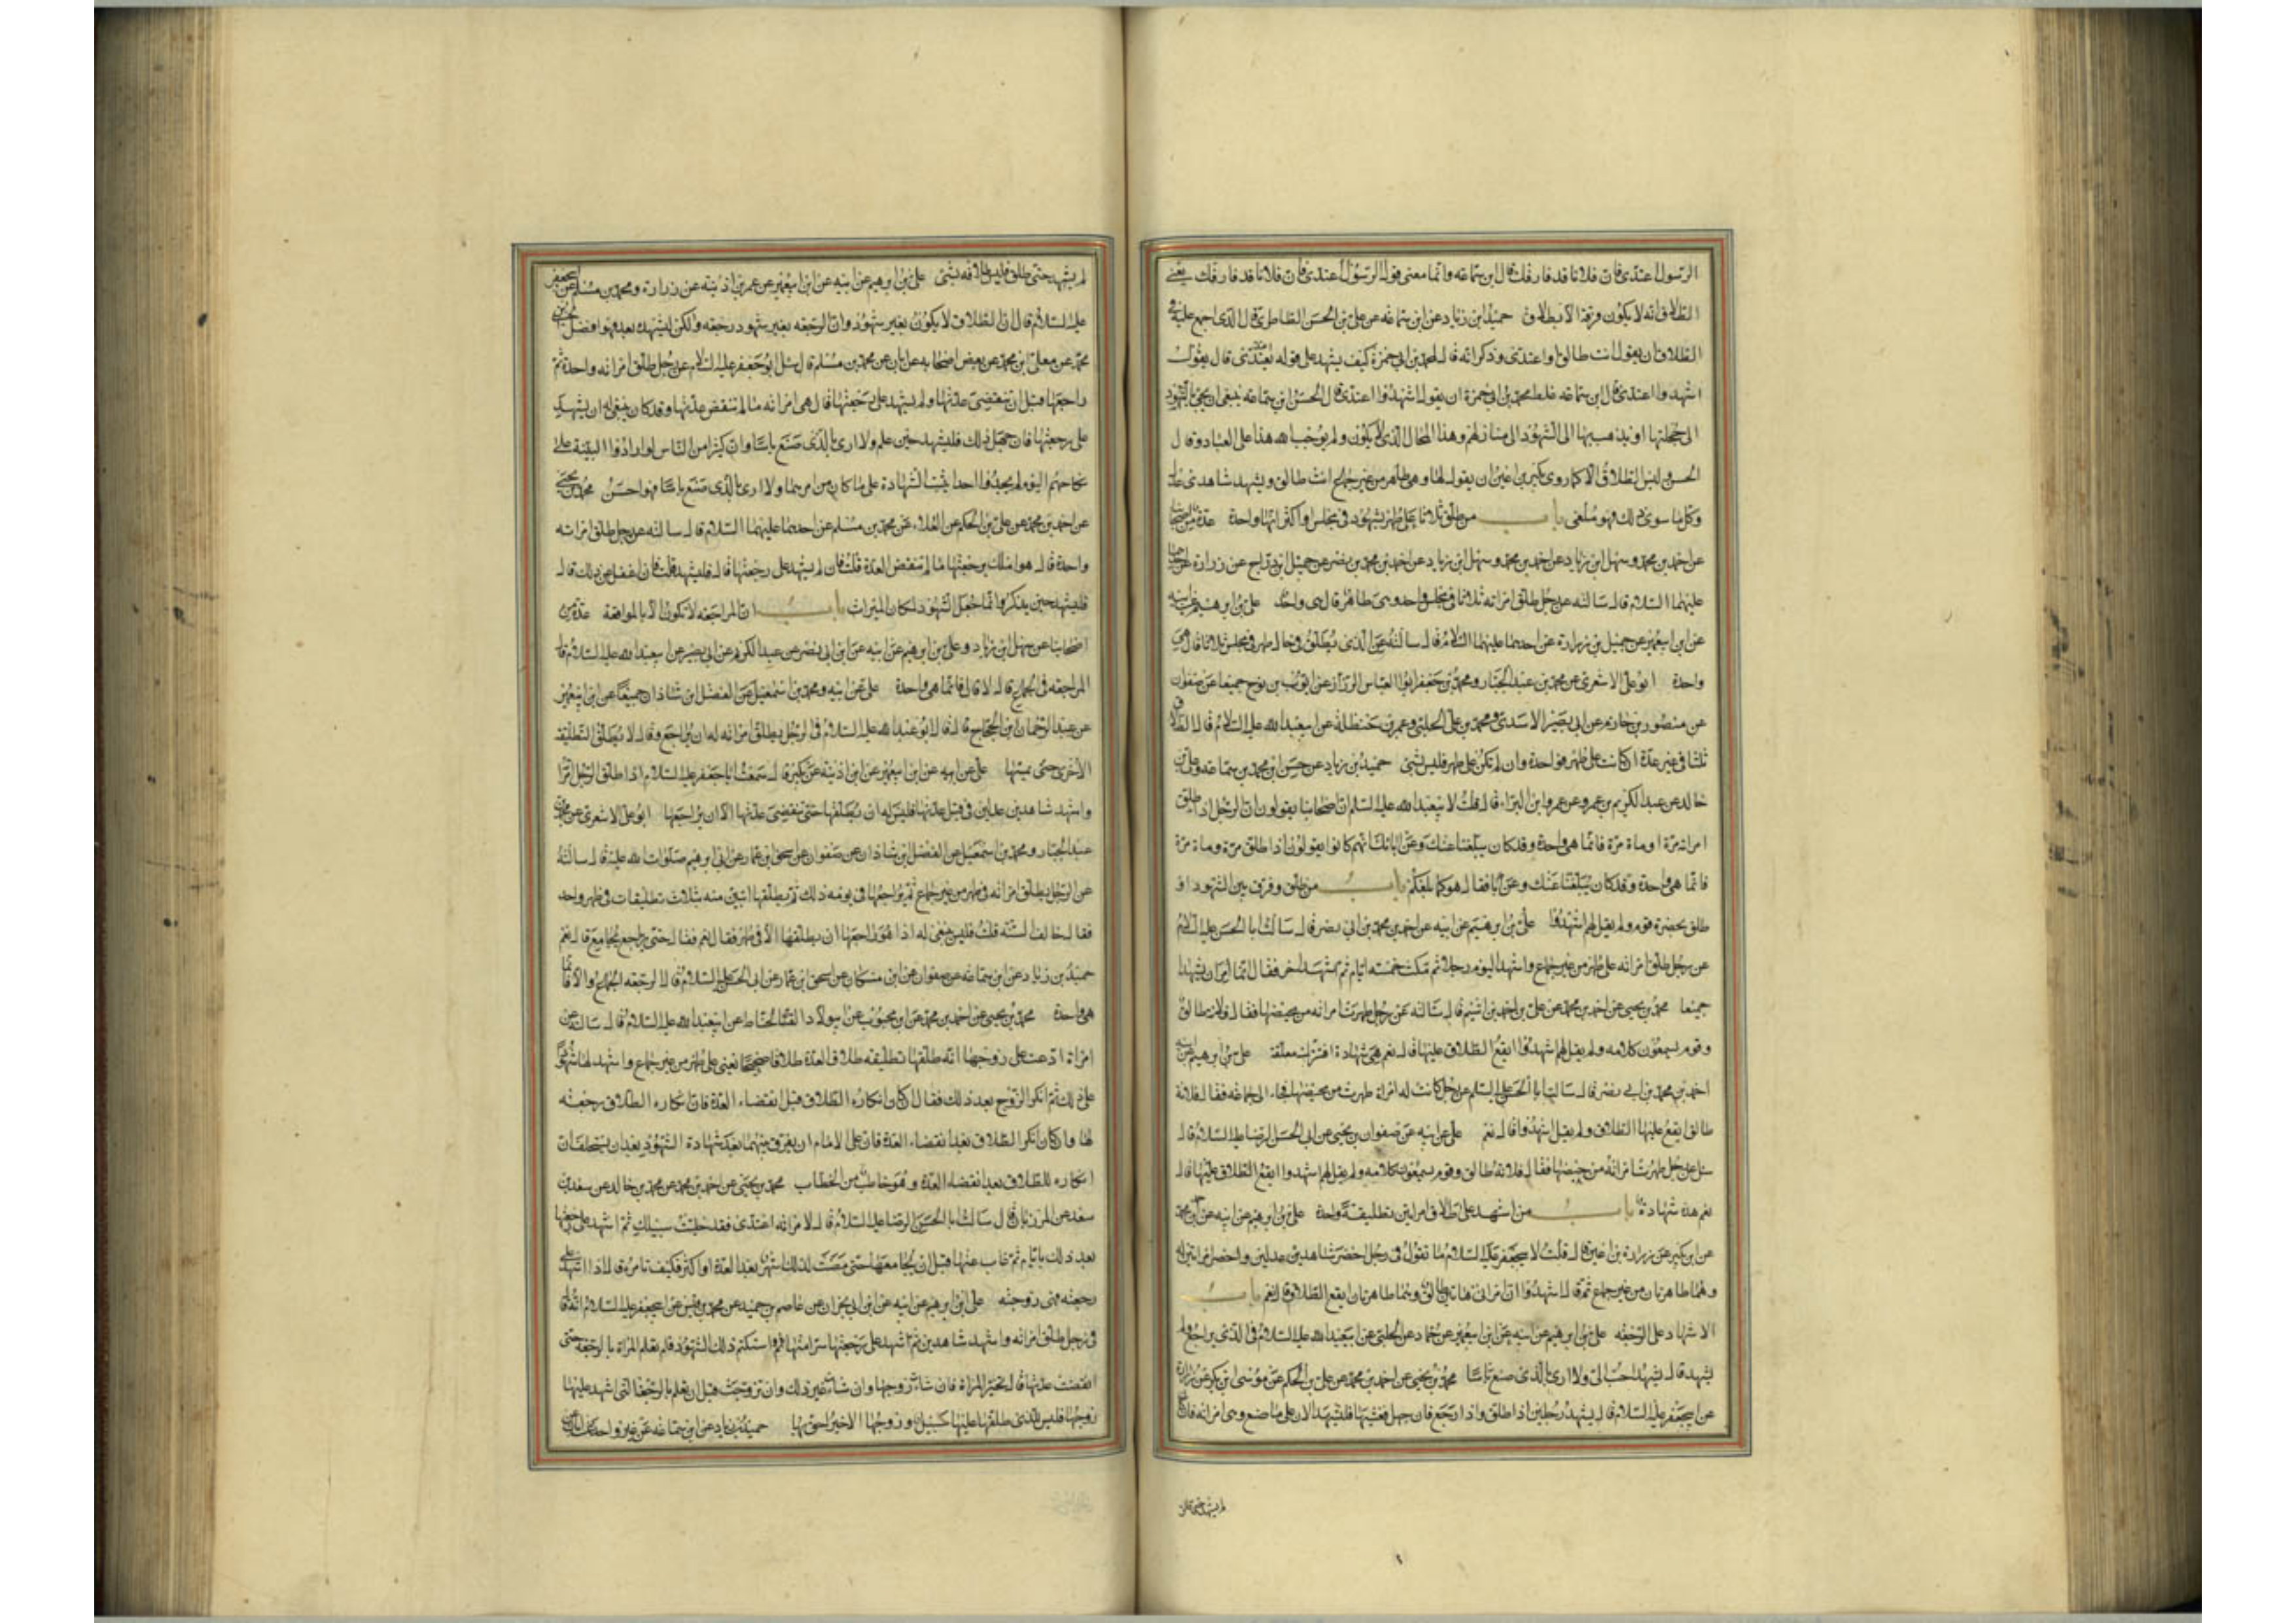 الرسول اعتدى فان فلانا قد فارقك قال ابن سماعه وانما معنى قول الرسول اعتدى فان فلانا قد فارقك يعنى
الطلاق انه لا يكون فرقة الا بطلاق حميد ابن زياد عن ابن سماعه عن على بن الحسن الطاطرى قال الذى اجمع عليه فى
الطلاق ان يقول انت طالق او اعتدى وذكر انه قال لمحمد بن ابى حمزة كيف يشهد على قوله اعتدى قال يقول
اشهدوا اعتدى قال ابن سماعه غلط محمد بن ابى حمزة ان يقول اشهدوا اعتدى قال الحسن ابن سماعه ينبغى ان يجئ بالشهود
الى حجلتها او يذهب بها الى الشهود الى منازلهم وهذا المحال الذى لا يكون ولم يوجب الله هذا على العباد وقال
الحسن ليس الطلاق الا كما روى بكير بن اعين ان يقول لها وهى طاهر من غير جماع انت طالق ويشهد شاهدى عدل
وكل ما سوى ذلك فهو ملغى باب من طلق ثلاثا على طهر بشهود فى مجلس او اكثر انها واحدة عدة من اصحابنا
عن احمد بن محمد وسهل ابن زياد عن احمد بن محمد وسهل ابن زياد عن احمد بن محمد بن نصر عن جميل ابن دراج عن زرارة عن احدهما
عليهما السلام قال سالته عن رجل طلق امراته ثلاثا فى مجلس واحد وهى طاهر قال هى واحدة على بن ابرهيم عن ابيه
عن ابن ابيعمير عن جميل بن زرارة عن احدهما عليهما السلام قال سالته عن الذى يطلق فى حال طهر فى مجلس ثلاثا قال هى
واحدة ابو على الاشعرى عن محمد بن عبد الجبار ومحمد بن جعفر ابو العباس الرزاز عن ايوب بن نوح جميعا عن صفوان
عن منصور بن حازم عن ابى بصير الاسدى ومحمد بن على الحلبى وعمر بن حنظلة عن ابيعبد الله عليه السلام قال الطلاق
ثلثا فى غير عدة ان كانت على طهر فواحدة وان لم تكن على طهر فليس بشئ حميد بن زياد عن حسن ابن محمد بن سماعة وعلى بن
خالد عن عبد الكريم بن عمرو عن عمرو ابن البراء قال قلت لابيعبد الله عليه السلم ان اصحابنا يقولون ان الرجل اذا طلق
امراته مرة او ماة مرة فانما هى واحدة وقد كان يبلغنا عنك وعن ابائك انهم كانوا يقولون اذا طلق مرة وماة مرة
فانما هى واحدة وقد كان يبلغنا عنك وعن فقال هو كما بلغكم باب من طلق وفرق بين الشهود او
طلق بحضرة قوم ولم يقل لهم اشهدوا على بن ابرهيم عن ابيه عن احمد بن محمد بن ابى نصر قال سالت ابا الحسن عليه السلام
عن رجل طلق امراته على طهر من غير جماع واشهد اليوم رجلا ثم مكث خمسه ايام ثم اشهد اخر فقال انما امر ان يشهدا
جميعا محمد بن يحيى عن احمد بن محمد عن على بن احمد بن اشيم قال سالته عن رجل طهرت امراته من حيضها فقال فلانة طالق
وقوم يسمعون كلامه ولم يقل لهم اشهدوا ايقع الطلاق عليها قال نعم هى شهادة افتترك معلقة على بن ابرهيم عن ابيه
احمد بن محمد بن ابى نصر قال سالت ابا الحسن عليه السلم عن رجل كانت له امراة طهرت من محيضها فجاء الى جماعه فقال فلانة
طالق ايقع عليها الطلاق ولم يقل اشهدوا قال نعم على عن ابيه عن صفوان بن يحيى عن ابى الحسن الرضا عليه السلام قال
سئل عن رجل طهرت امراته من حيضها فقال فلانة طالق وقوم يسمعون كلامه ولم يقل لهم اشهدوا ايقع الطلاق عليها قال
نعم هذه شهادة باب من اشهد على طلاق امراتين بتطليقة واحدة على بن ابرهيم عن ابيه عن ابن محمد
عن ابن بكير عن زرارة بن اعين قال قلت لابيجعفر عليه السلام ما تقول فى رجل احضر شاهدين عدلين واحضر امراتين له
وهما طاهرتان من غير جماع ثم قال اشهدوا ان امراتى هاتين طالق وهما طاهرتان ايقع الطلاق قال نعم باب
الاشهاد على الرجعه على بن ابرهيم عن ابيه عن ابن ابيعمير عن حماد عن الحلبى عن ابيعبد الله عليه السلام فى الذى يراجع ولم
يشهد قال يشهد احب الى ولا ارى بالذى صنع باسا محمد بن يحيى عن احمد بن محمد عن على بن الحكم عن موسى ابن بكر عن زرارة
عن ابيجعفر عليه السلام قال يشهد رجلين اذا طلق واذا رجع فان جهل فغشيها فليشهد الان على ما صنع وهى امراته فان كان
لم يشهد حتى طلق
لم يشهد حتى طلق فليس طلاقه بشئ على بن ابرهيم عن ابيه عن ابن ابيعمير عن عمر بن اذينه عن زرارة ومحمد بن مسلم عن ابيجعفر
عليه السلام قال ان الطلاق لا يكون بغير شهود وان الرجعه بغير شهود رجعه ولكن ليشهد بعد فهو افضل الحسين بن
محمد عن معلى ابن محمد عن بعض اصحابه عن ابان عن محمد بن مسلم قال سئل ابو جعفر عليه السلام عن رجل طلق امراته واحدة ثم
راجعها قبل ان تنقضى عدتها ولم يشهد على رجعتها قال هى امراته ما لم تنقض عدتها وقد كان ينبغى له ان يشهد
على رجعتها فان جهل ذلك فليشهد حين علم ولا ارى بالذى صنع باسا وان كثيرا من الناس لو ارادوا البينة على
نكاحهم اليوم لم يجدوا احدا يثبت الشهادة على ما كان من امرهما ولا ارى بالذى صنع باسا فهو احسن محمد بن يحيى
عن احمد بن محمد عن على بن الحكم عن العلاء عن محمد بن مسلم عن احدهما عليهما السلام قال سالته عن رجل طلق امراته
واحدة قال هو املك برجعتها ما لم تنقض العدة قلت فان لم يشهد على رجعتها قال فليشهد قلت فان غفل عن ذلك قال
فليشهد حين يذكر وانما جعل الشهود لمكان الميراث باب ان المراجعه لا تكون الا بالمواقعة عدة من
اصحابنا عن سهل ابن زياد وعلى بن ابرهيم عن ابيه عن ابن ابى نصر عن عبد الكريم عن ابى بصير عن ابيعبد الله عليه السلام قال
المراجعه فى الجماع قال لا قال فانما هى واحدة على عن ابيه ومحمد بن اسمعيل عن الفضل ابن شاذان جميعا عن ابن ابيعمير
عن عبد الرحمان ابن الحجاج قال قال ابو عبد الله عليه السلام فى الرجل يطلق امراته له ان يراجع وقال لا يطلق التطليقة
الاخرى حتى يمسها على عن ابيه عن ابن ابيعمير عن ابن اذينه عن بكير قال سمعت ابا جعفر عليه السلام اذا طلق الرجل امراته
واشهد شاهدين عدلين فى قبل عدتها فليس له ان يطلقها حتى تنقضى عدتها الا ان يراجعها ابو على الاشعرى عن محمد بن
عبد الجبار ومحمد بن اسمعيل عن الفضل بن شاذان عن صفوان عن اسحق ابن عمار عن ابى ابرهيم صلوات الله عليه قال سالته
عن الرجل يطلق امراته فى طهر من غير جماع ثم يراجعها فى يومه ذلك ثم يطلقها اتبين منه بثلاث تطليقات فى طهر واحد
فقال خالف السنه قلت فليس ينبغى له اذا هو راجعها ان يطلقها الا فى طهر فقال نعم فقال حتى يراجع بجامع قال نعم
حميد بن زياد عن ابن سماعه عن صفوان عن ابن مسكان عن اسحق ابن عمار عن ابى الحسن عليه السلام قال الرجعه الجماع والا فانما
هى واحدة محمد بن يحيى عن احمد بن محمد عن ابن محبوب عن ابى ولاد الحناط عن ابيعبد الله عليه السلام قال سالته عن
امراة ادعت على زوجها انه طلقها تطليقه طلاق العدة طلاقا صحيحا يعنى على طهر من غير جماع واشهد لها شهودا
على ذلك ثم انكر الزوج بعد ذلك فقال ان كان انكاره الطلاق قبل انقضاء العدة فان انكاره الطلاق رجعته
لها وان كان انكر الطلاق بعد انقضاء العدة فان على الامام ان يفرق بينهما بعد شهادة الشهود بعد ان يستحلف ان
انكاره للطلاق بعد انقضاء العدة وهو خاطب من الخطاب محمد بن يحيى عن احمد بن محمد عن محمد بن خالد عن سعد بن
سعد عن المرزبان قال سالت ابا الحسن الرضا عليه السلام قال لامراته اعتدى فقد خليت سبيلك ثم اشهد على رجعتها
بعد ذلك بايام ثم غاب عنها قبل ان يجامعها حتى مضت لذلك اشهر بعد العدة او اكثر فكيف تامره قال اذا اشهد على
رجعته فهى زوجته على ابن ابرهيم عن ابيه عن ابن ابى نجران عن عاصم بن حميد عن محمد بن قيس عن ابيجعفر عليه السلام انه قال
فى رجل طلق امراته واشهد شاهدين ثم اشهد على رجعتها سرا منها واستكتم ذلك الشهود فلم تعلم المراة بالرجعة حتى
انقضت عدتها قال تخير المراة فان شاءت زوجها وان شاءت غير ذلك وان تزوجت قبل ان تعلم بالرجعة التى اشهد عليها
زوجها فليس للذى طلقها عليها سبيل وزوجها الاخير احق بها حميد بن زياد عن ابن سماعه عن غير واحد عن ابان عن